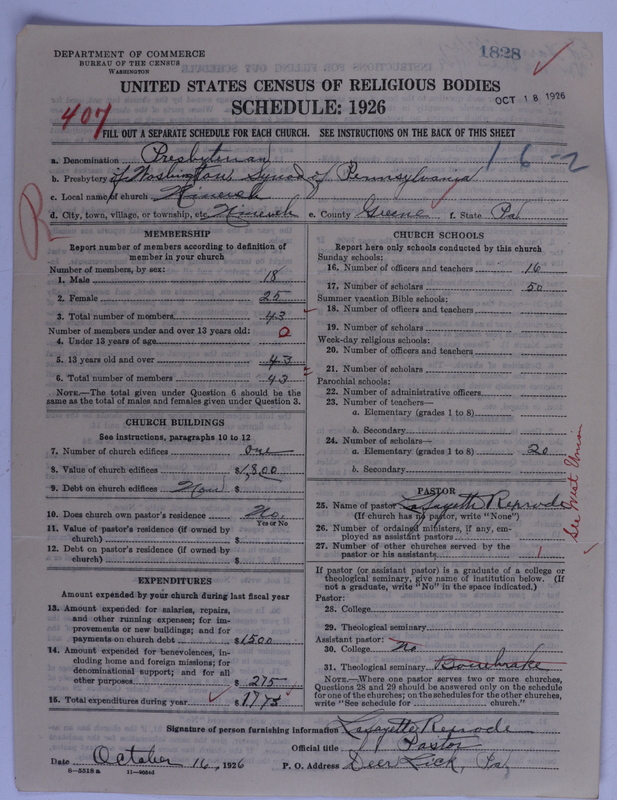 DEPARTMENT OF COMMERCE
BUREAU OF THE CENSUS
WASHINGTON
1828
UNITED STATES CENSUS OF RELIGIOUS BODIES
SCHEDULE: 1926
OCT 18 1926
407
FILL OUT A SEPARATE SCHEDULE FOR EACH CHURCH. SEE INSTRUCTIONS ON THE BACK OF THIS SHEET
1 6-2
a. Denomination Presbyterian
b. Presbytery of Washington Synod of Pennsylvania
c. Local name of church
d. City, town, village, or township, etc. e. County Greene f. State Pa
R
MEMBERSHIP
Report number of members according to definition of member in your church
Number of members, by sex:
1. Male 18
2. Female 25
3. Total number of members 43
Number of members under and over 13 years old:
4. Under 13 years of age 0
5. 13 years old and over 43
6. Total number of members 43
NOTE.—The total given under Question 6 should be the same as the total of males and females given under Question 3.
CHURCH BUILDINGS
See instructions, paragraphs 10 to 12
7. Number of church edifices one
8. Value of church edifices $1,800
9. Debt on church edifices None $
10. Does church own pastor's residence No.
Yes or No
11. Value of pastor's residence (if owned by church) $
12. Debt on pastor's residence (if owned by church) $
EXPENDITURES
Amount expended by your church during last fiscal year
13. Amount expended for salaries, repairs, and other running expenses; for improvements or new buildings; and for payments on church debt $1500
14. Amount expended for benevolences, including home and foreign missions; for denominational support; and for all other purposes $ 275
15. Total expenditures during year $ 1775
CHURCH SCHOOLS
Report here only schools conducted by this church
Sunday schools:
16. Number of officers and teachers 16
17. Number of scholars 50
Summer vacation Bible schools:
18. Number of officers and teachers
19. Number of scholars
Week-day religious schools:
20. Number of officers and teachers
21. Number of scholars
Parochial schools:
22. Number of administrative officers
23. Number of teachers—
a. Elementary (grades 1 to 8)
b. Secondary
24. Number of scholars—
a. Elementary (grades 1 to 8) 20
b. Secondary
PASTOR
25. Name of pastor Lafayette
(If church has no pastor, write "None")
26. Number of ordained ministers, if any, employed as assistant pastors
27. Number of other churches served by the pastor or his assistants 1
See West Union
If pastor (or assistant pastor) is a graduate of a college or theological seminary, give name of institution below. (If not a graduate, write "No" in the space indicated.)
Pastor:
28. College
29. Theological seminary
Assistant pastor:
30. College No
31. Theological seminary Bonebrake
NOTE.—Where one pastor serves two or more churches, Questions 28 and 29 should be answered only on the schedule for one of the churches; on the schedules for the other churches, write "See schedule for church."
Signature of person furnishing information Lafayette
Official title Pastor
Date October 16, 1926 P. O. Address Deer Lick, Pa
8—5518 a 11—9554